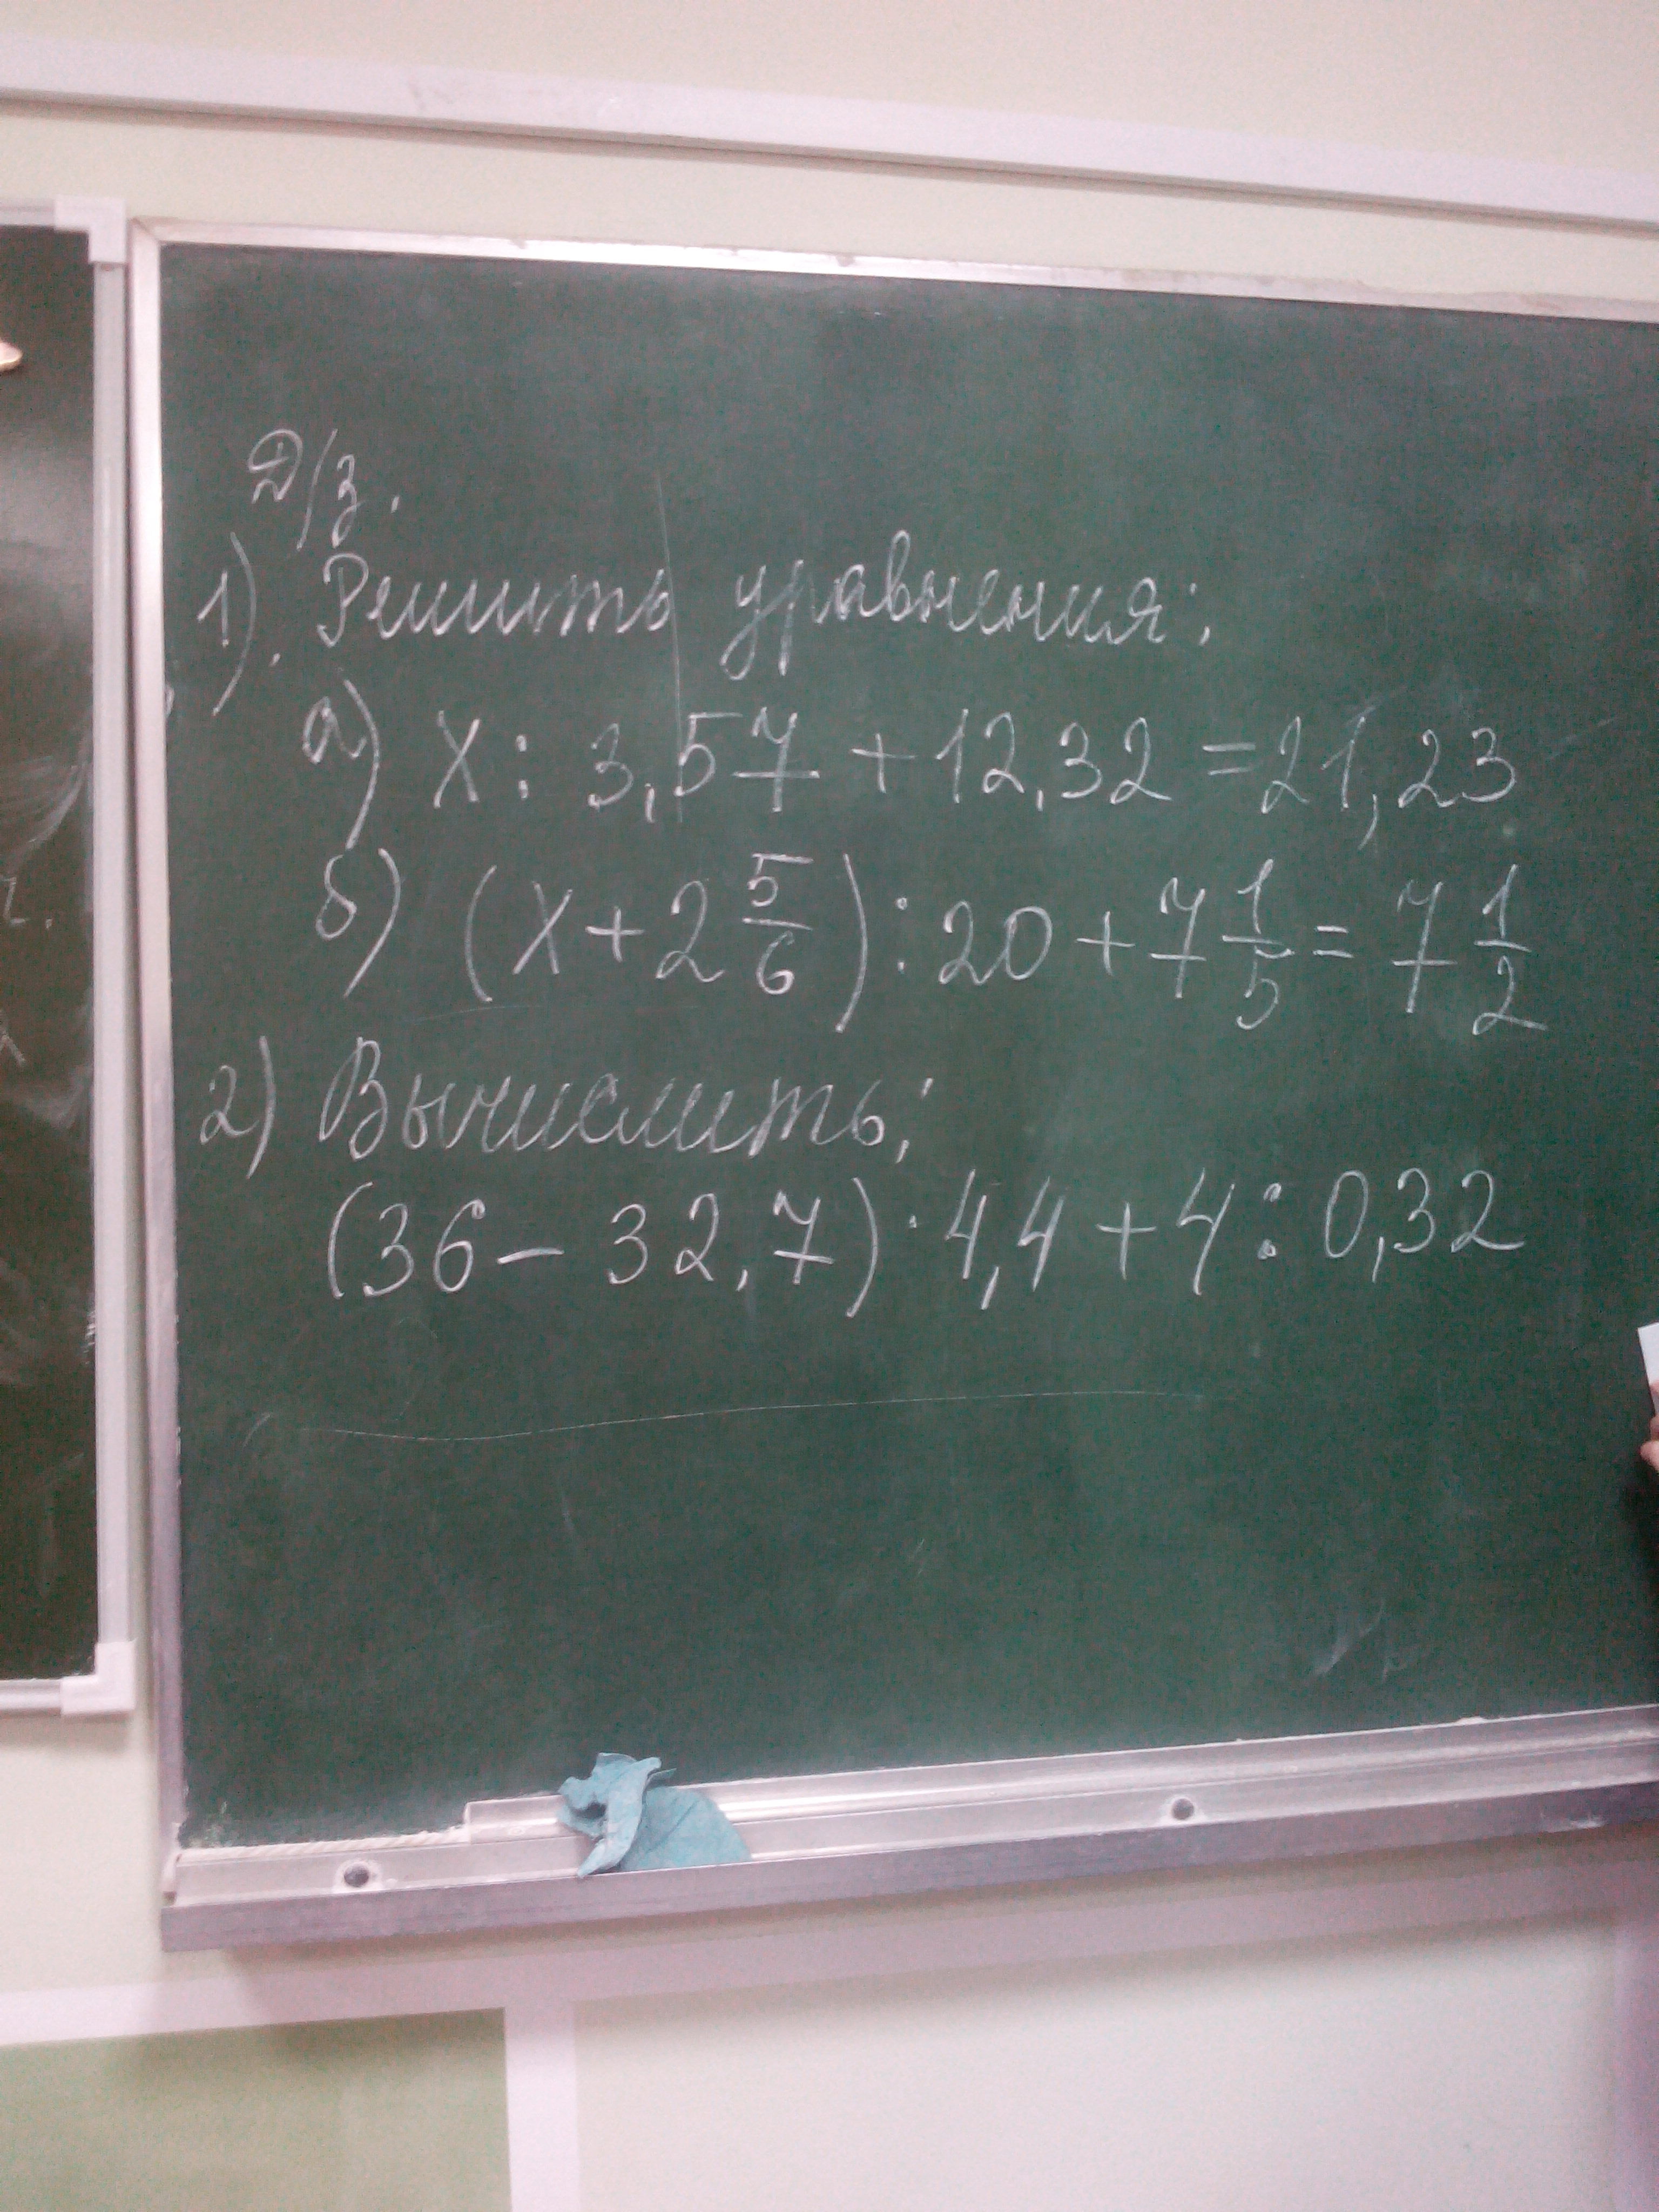 Д/з.
1). Решить уравнения:
а) x : 3,57 + 12,32 = 21,23
б) (x + 2 5/6) : 20 + 7 1/5 = 7 1/2
2) Вычислить;
(36 - 32,7) · 4,4 + 4 : 0,32